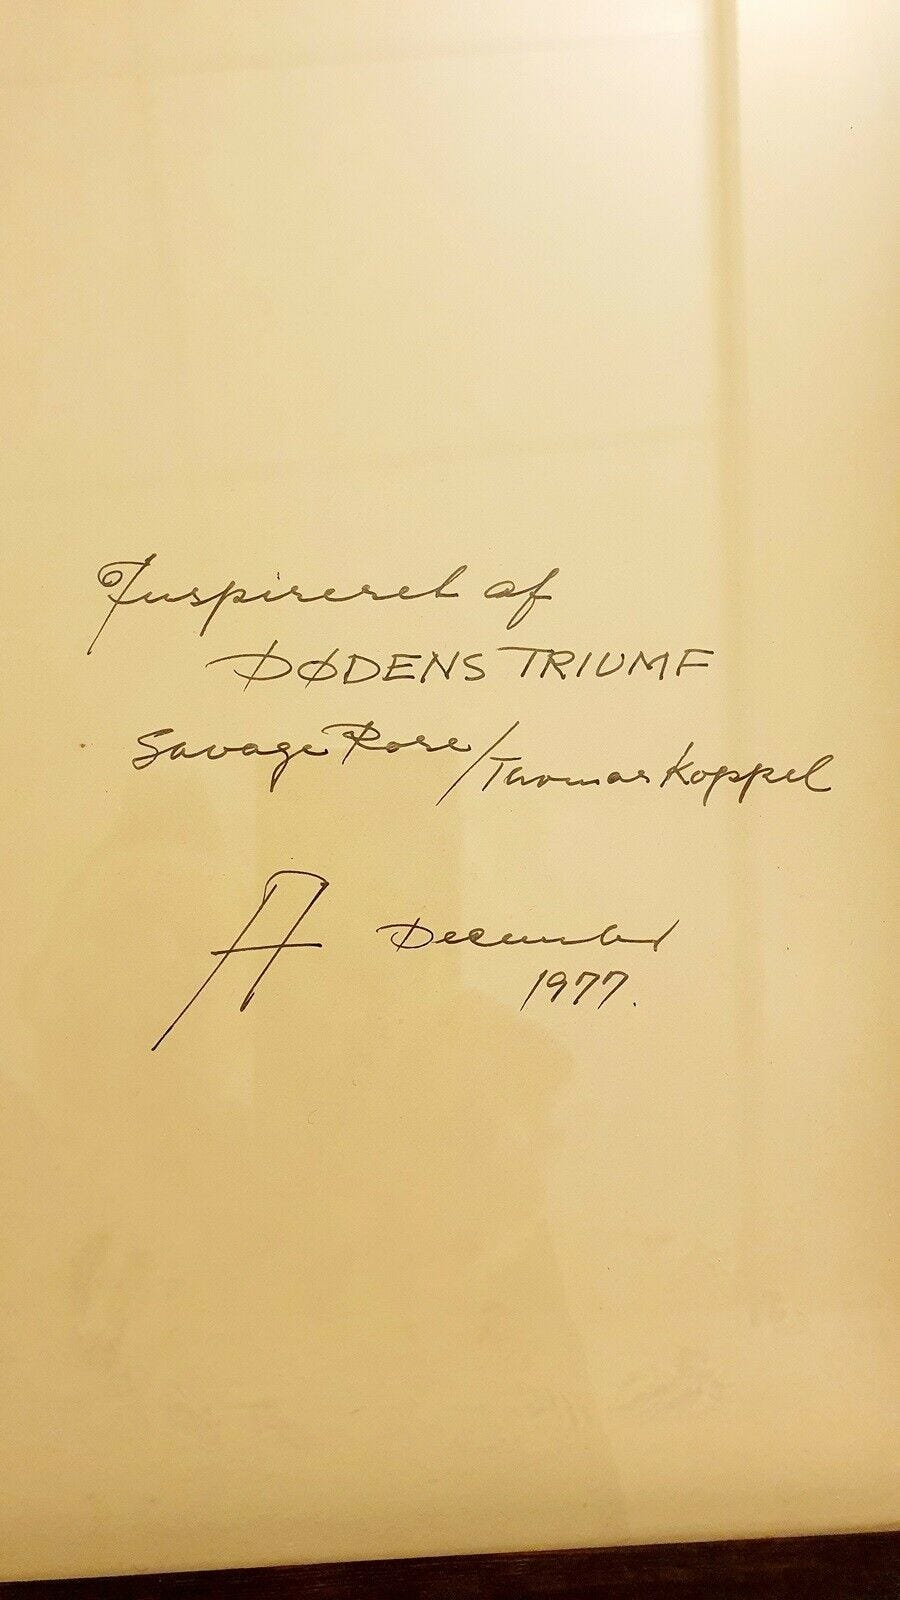 Inspireret af
DØDENS TRIUMF
Savage Rose/Thomas Koppel
A December
1977.